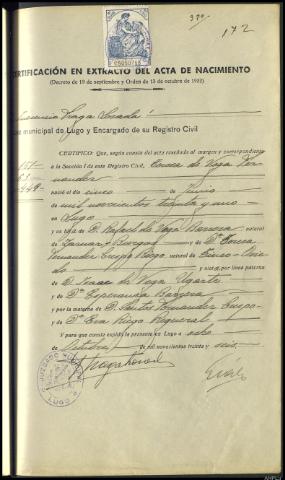 370
172
CERTIFICACIÓN EN EXTRACTO DEL ACTA DE NACIMIENTO
(Decreto de 19 de septiembre y Orden de 13 de octubre de 1932)
Fraga
municipal de Lugo y Encargado de su Registro Civil
CERTIFICO: Que, según consta del acta reseñada al margen y correspondiente
a la Sección 1 de este Registro Civil, de Vega Fer-
nandez
nació el día cinco de Junio
de mil novecientos treinta y uno
en Lugo
y es hija de D. Rafael de Vega Barrera natural
de Burgos y de Dª
Fernandez Crespo Riego natural de Cineo-
y nieta por línea paterna
de D. Isaac de Vega Ugarte
y de Dª Esperanza Barrera
y por la materna de D. Fernandez Crespo
y de Dª Eva Riego
Y para que conste expido la presente en Lugo a ocho
de Octubre de mil novecientos treinta y seis
LUGO